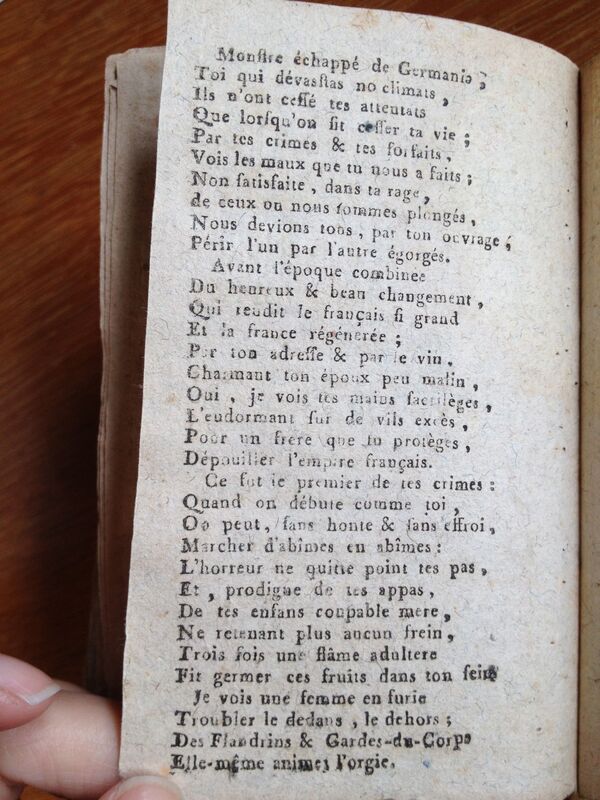 Monſtre échappé de Germanie ;
Toi qui dévaſtas no climats ,
Ils n'ont ceſſé tes attentats
Que lorſqu'on fit ceſſer ta vie ;
Par tes crimes & tes forfaits ,
Vois les maux que tu nous a faits ;
Non ſatisfaite , dans ta rage ,
de ceux ou nous ſommes plongés ,
Nous devions tous , par ton ouvrage ;
Périr l'un par l'autre égorgés.
Avant l'époque combinee
Du heureux & beau changement ,
Qui rendit le français ſi grand
Et la france régénerée ;
Par ton adreſſe & par le vin ,
Charmant ton époux peu malin ,
Oui , je vois tes mains ſacrilèges ,
L'eudormant ſur de vils excès ,
Pour un frere que tu protèges ,
Dépouiller l'empire français.
Ce fut le premier de tes crimes :
Quand on débute comme toi ,
On peut , ſans honte & ſans effroi ,
Marcher d'abîmes en abîmes :
L'horreur ne quitte point tes pas ,
Et , prodigue de tes appas ,
De tes enfans coupable mere ,
Ne retenant plus aucun frein ,
Trois fois une flâme adultere
Fit germer ces fruits dans ton ſein
Je vois une femme en furie
Troubler le dedans , le dehors ;
Des Flandrins & Gardes-du-Corps
Elle-même animer l'orgie.